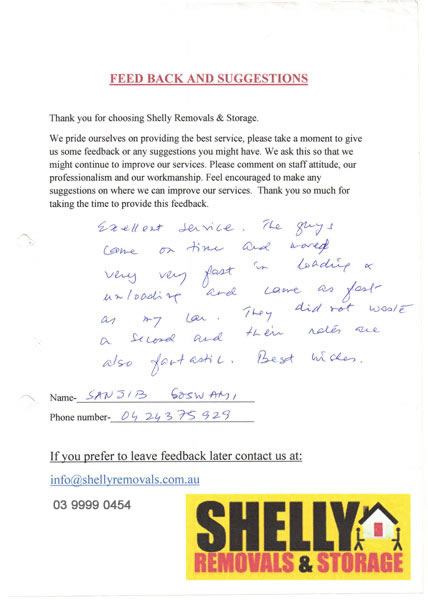 FEED BACK AND SUGGESTIONS
Thank you for choosing Shelly Removals & Storage.
We pride ourselves on providing the best service, please take a moment to give
us some feedback or any suggestions you might have. We ask this so that we
might continue to improve our services. Please comment on staff attitude, our
professionalism and our workmanship. Feel encouraged to make any
suggestions on where we can improve our services. Thank you so much for
taking the time to provide this feedback.
Exellent service. The guys
came on time and moved
very very fast in loading &
unloading and came as fast
as my car. They did not waste
a second and their rates are
also fantastic. Best wishes.
Name- SANJIB GOSWAMI
Phone number- 04 24375929
If you prefer to leave feedback later contact us at:
info@shellyremovals.com.au
03 9999 0454
SHELLY
REMOVALS & STORAGE